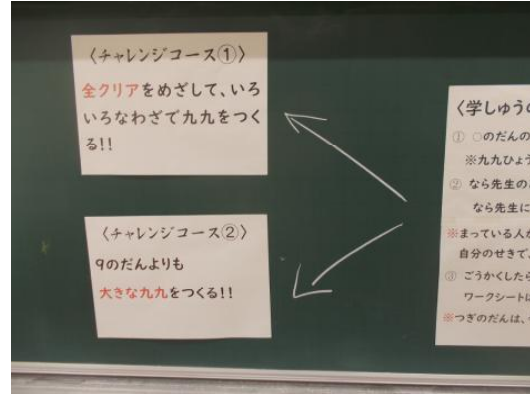 〈チャレンジコース①〉
全クリアをめざして、いろ
いろなわざで九九をつく
る!!
〈チャレンジコース②〉
9のだんよりも
大きな九九をつくる!!
〈学しゅうの
① ○のだんの
※九九ひょう
② なら先生の
なら先生に
※まっている人が
自分のせきで、
③ ごうかくしたら
ワークシートに
※つぎのだんは、